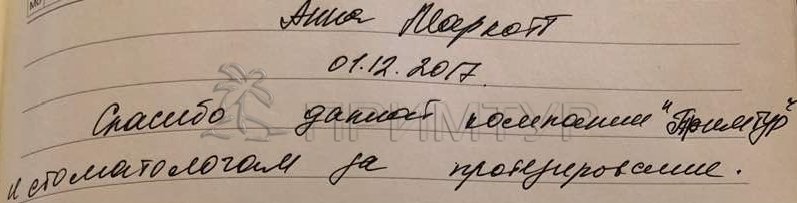 Анна Маркотт
01.12.2017
Спасибо данной компании "Примтур"
и стоматологам за протезирование.
ПРИМТУР